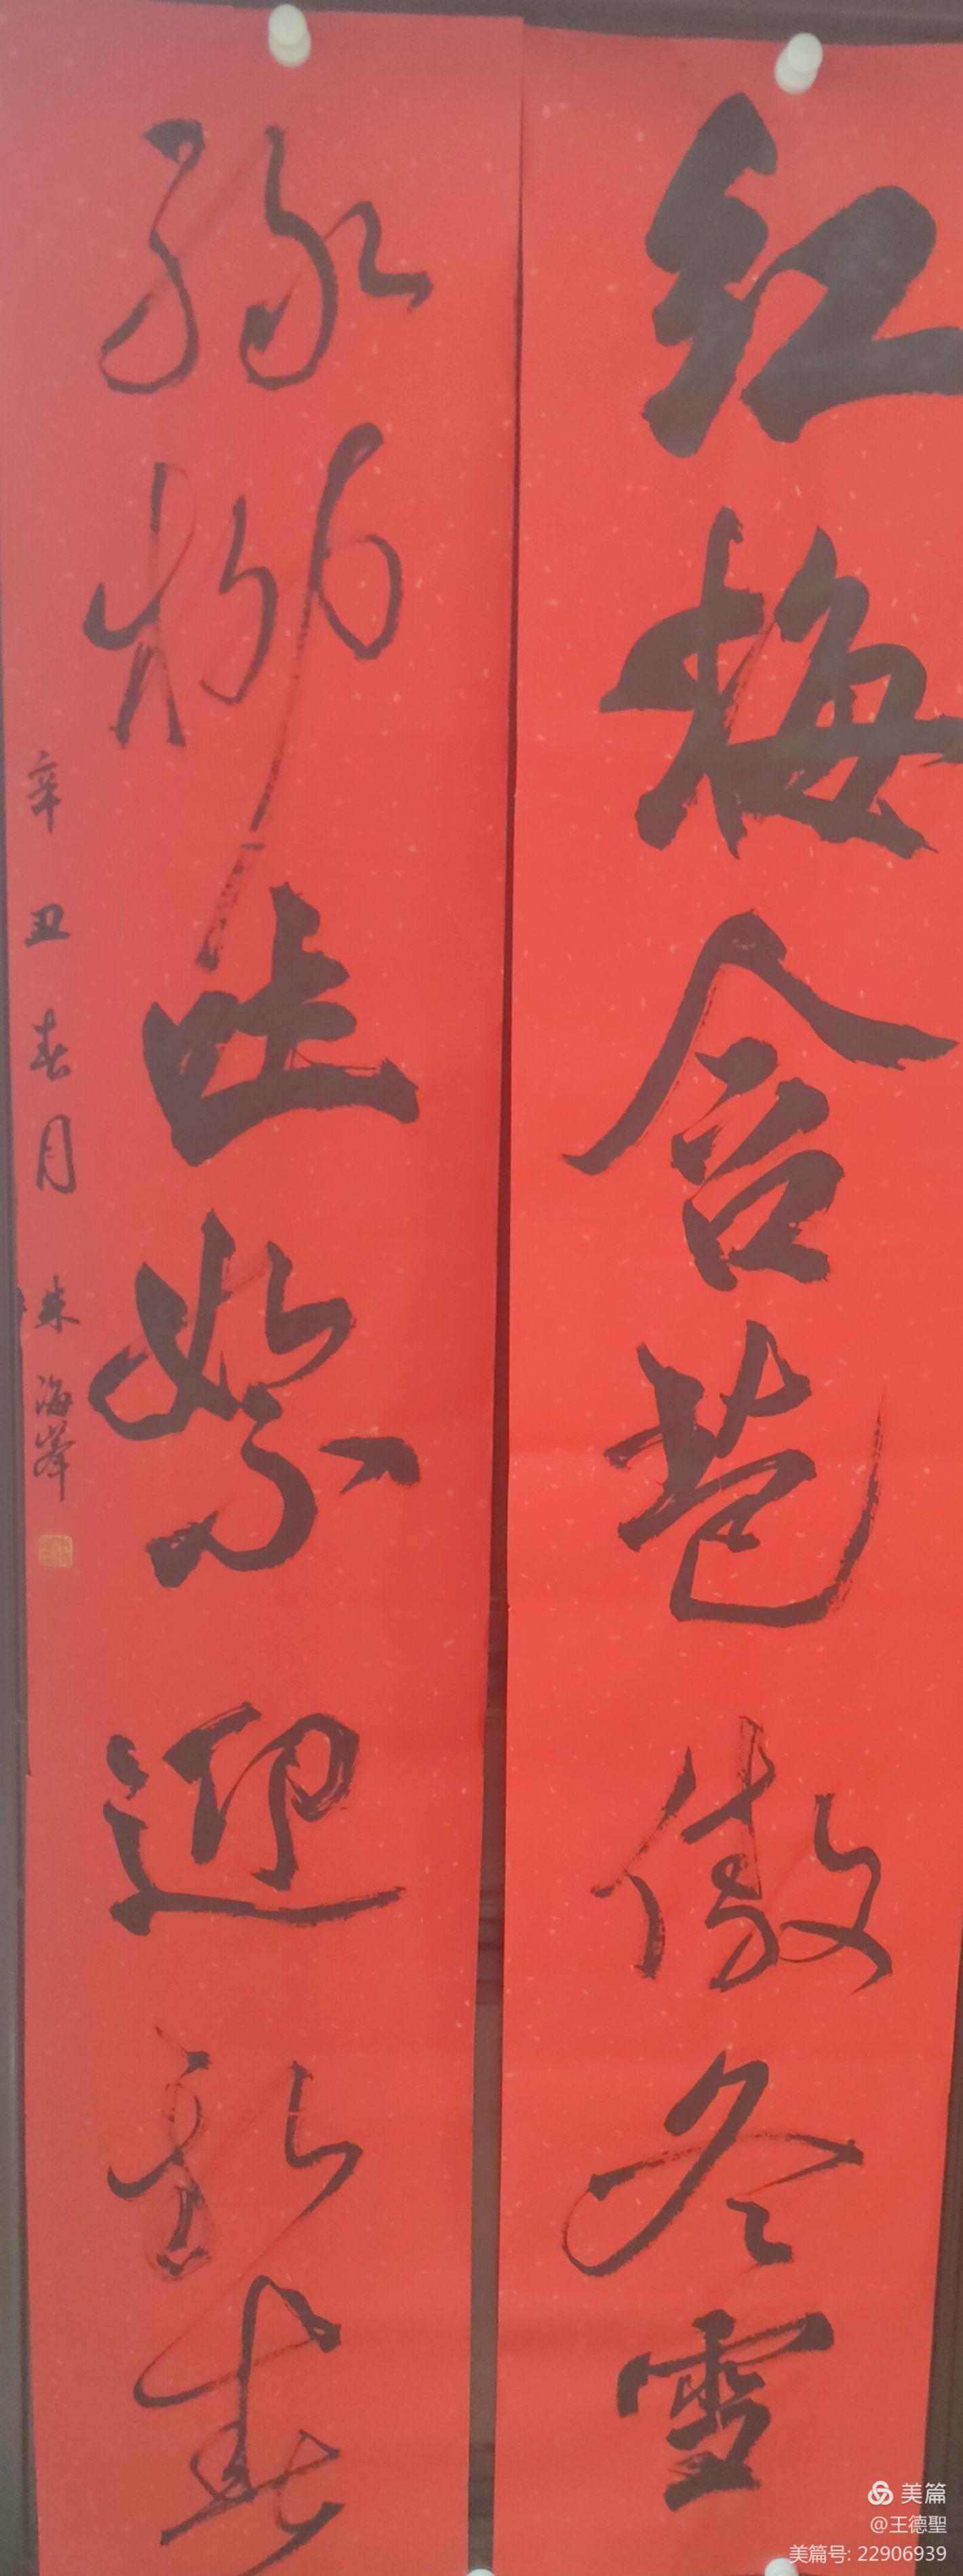 红梅含苞傲冬雪
绿柳吐絮迎新春
辛丑春月 朱海峰
美篇
@王德聖
美篇号: 22906939